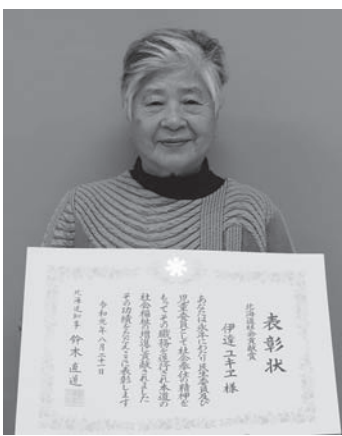 表彰状
北海道社会貢献賞
伊達ユキヱ 様
あなたは永年にわたり民生委員及び
児童委員として社会奉仕の精神を
もってその職務を遂行され本道の
社会福祉の増進に貢献されました
その功績をたたえここに表彰します
令和元年八月二十一日
北海道知事 鈴木直道